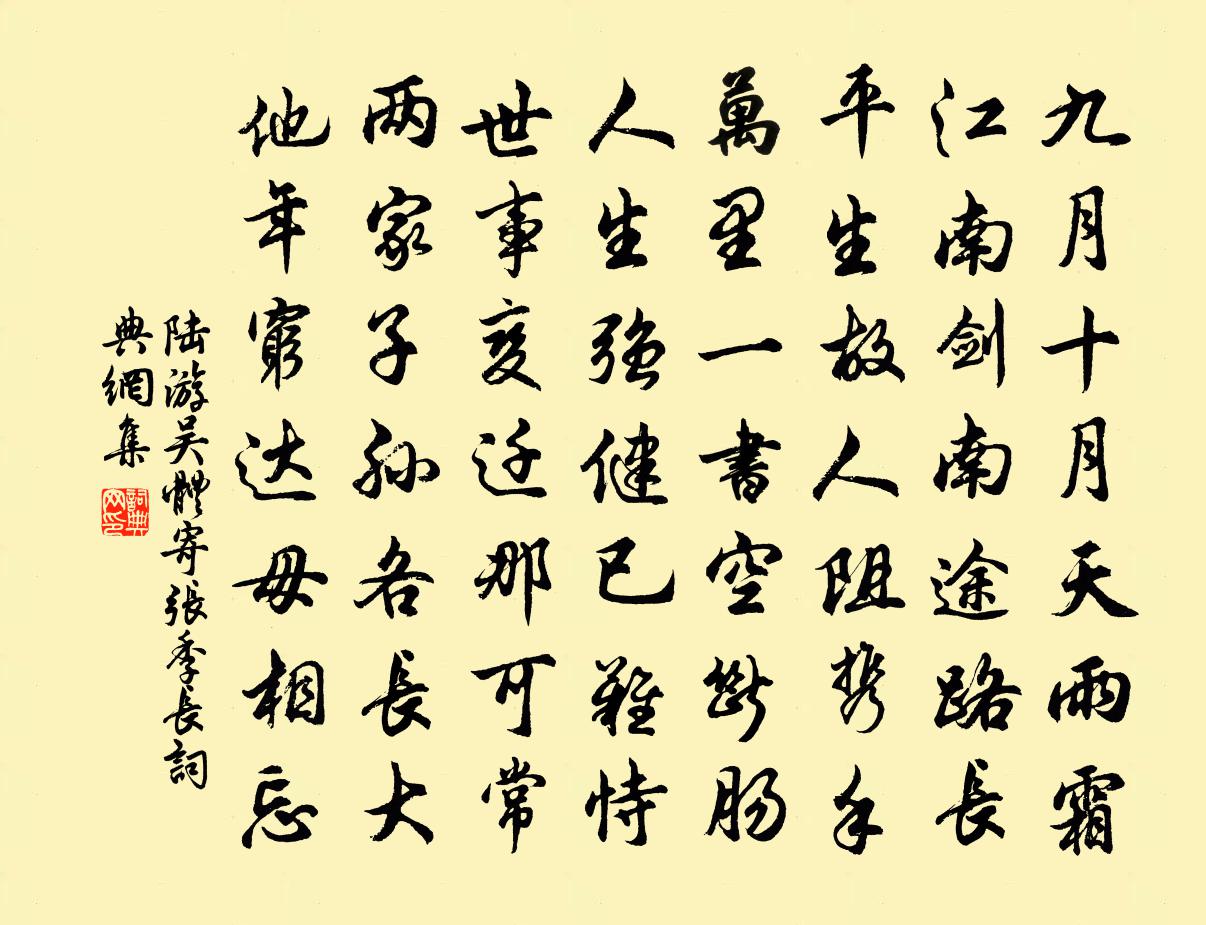 九月十月天雨霜
江南剑南途路長
平生故人阻携手
萬里一書空斷肠
人生强健已難恃
世事变迁那可常
两家子孙各長大
他年窮达毋相忘
陆游吴體寄張季長詞
典網集
詞典
网印